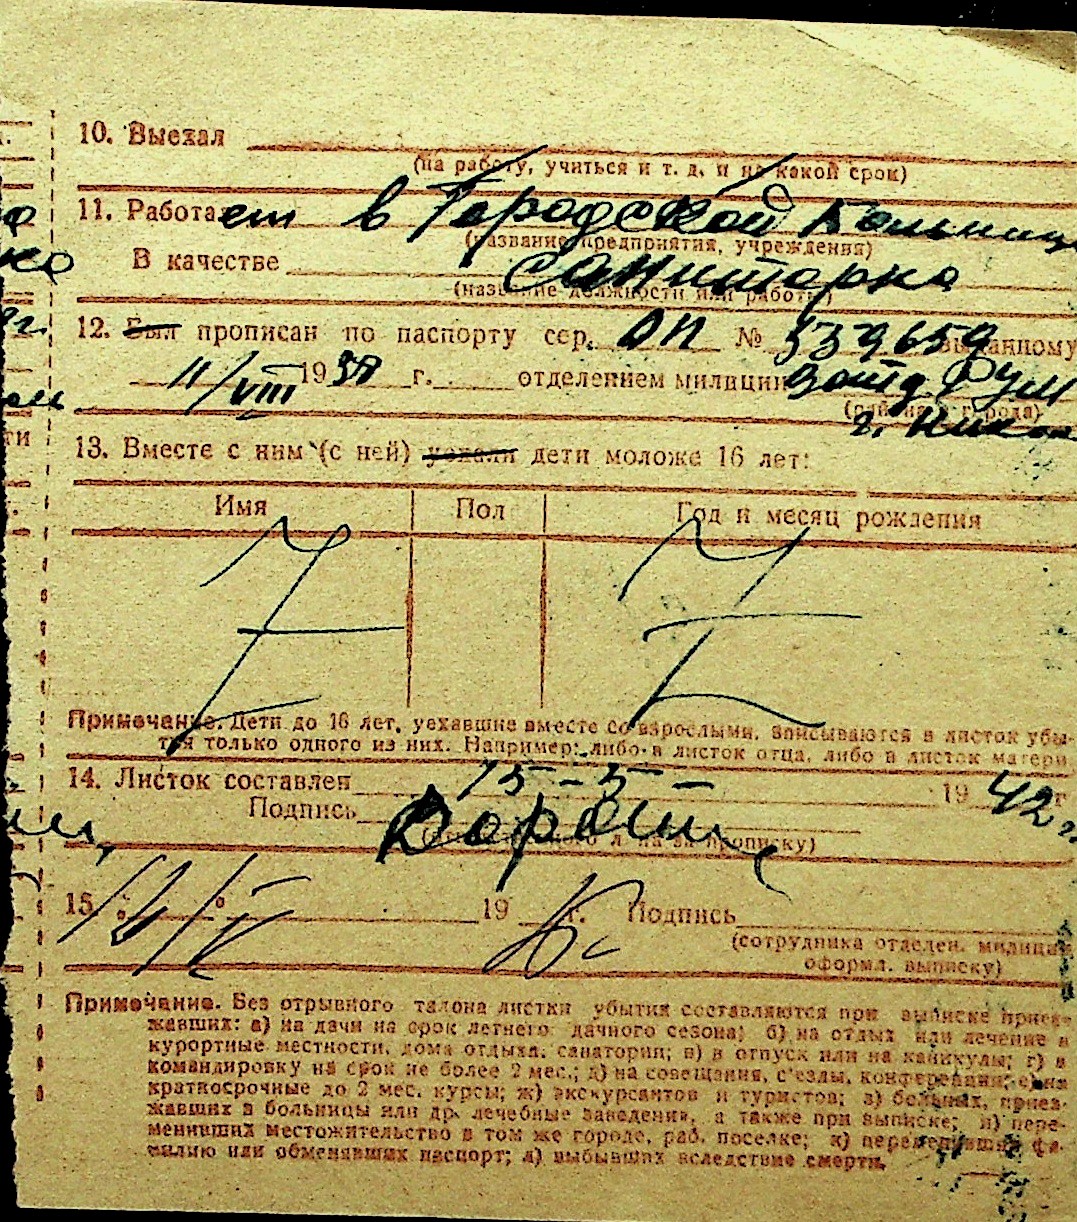 10. Выехал
(на работу, учиться и т. д. и на какой срок)
11. Работает в Городской Больнице
(название предприятия, учреждения)
В качестве санитарка
(название должности или работы)
12. Был прописан по паспорту сер. ОП № 339659 выданному
11/VIII 1938 г. отделением милиции
(района, города)
г. Никол
13. Вместе с ним (с ней) уехали дети моложе 16 лет:
Имя Пол Год и месяц рождения
Z Z
Примечание. Дети до 16 лет, уехавшие вместе со взрослыми, вписываются в листок убы-
тия только одного из них. Например: либо в листок отца, либо в листок матери
14. Листок составлен 15-5- 1942 г.
Подпись
15. 19 г. Подпись
(сотрудника отделен. милиции
оформл. выписку)
Примечание. Без отрывного талона листки убытия составляются при выписке приез-
жавших: а) на дачи на срок летнего дачного сезона; б) на отдых или лечение в
курортные местности, дома отдыха, санатории; в) в отпуск или на каникулы; г) в
командировку на срок не более 2 мес.; д) на совещания, с'езды, конференции; е) на
краткосрочные до 2 мес. курсы; ж) экскурсантов и туристов; з) больных, приез-
жавших в больницы или др. лечебные заведения, а также при выписке; и) пере-
менивших местожительство в том же городе, раб. поселке; к) переменивших фа-
милию или обменявших паспорт; л) выбывших вследствие смерти.